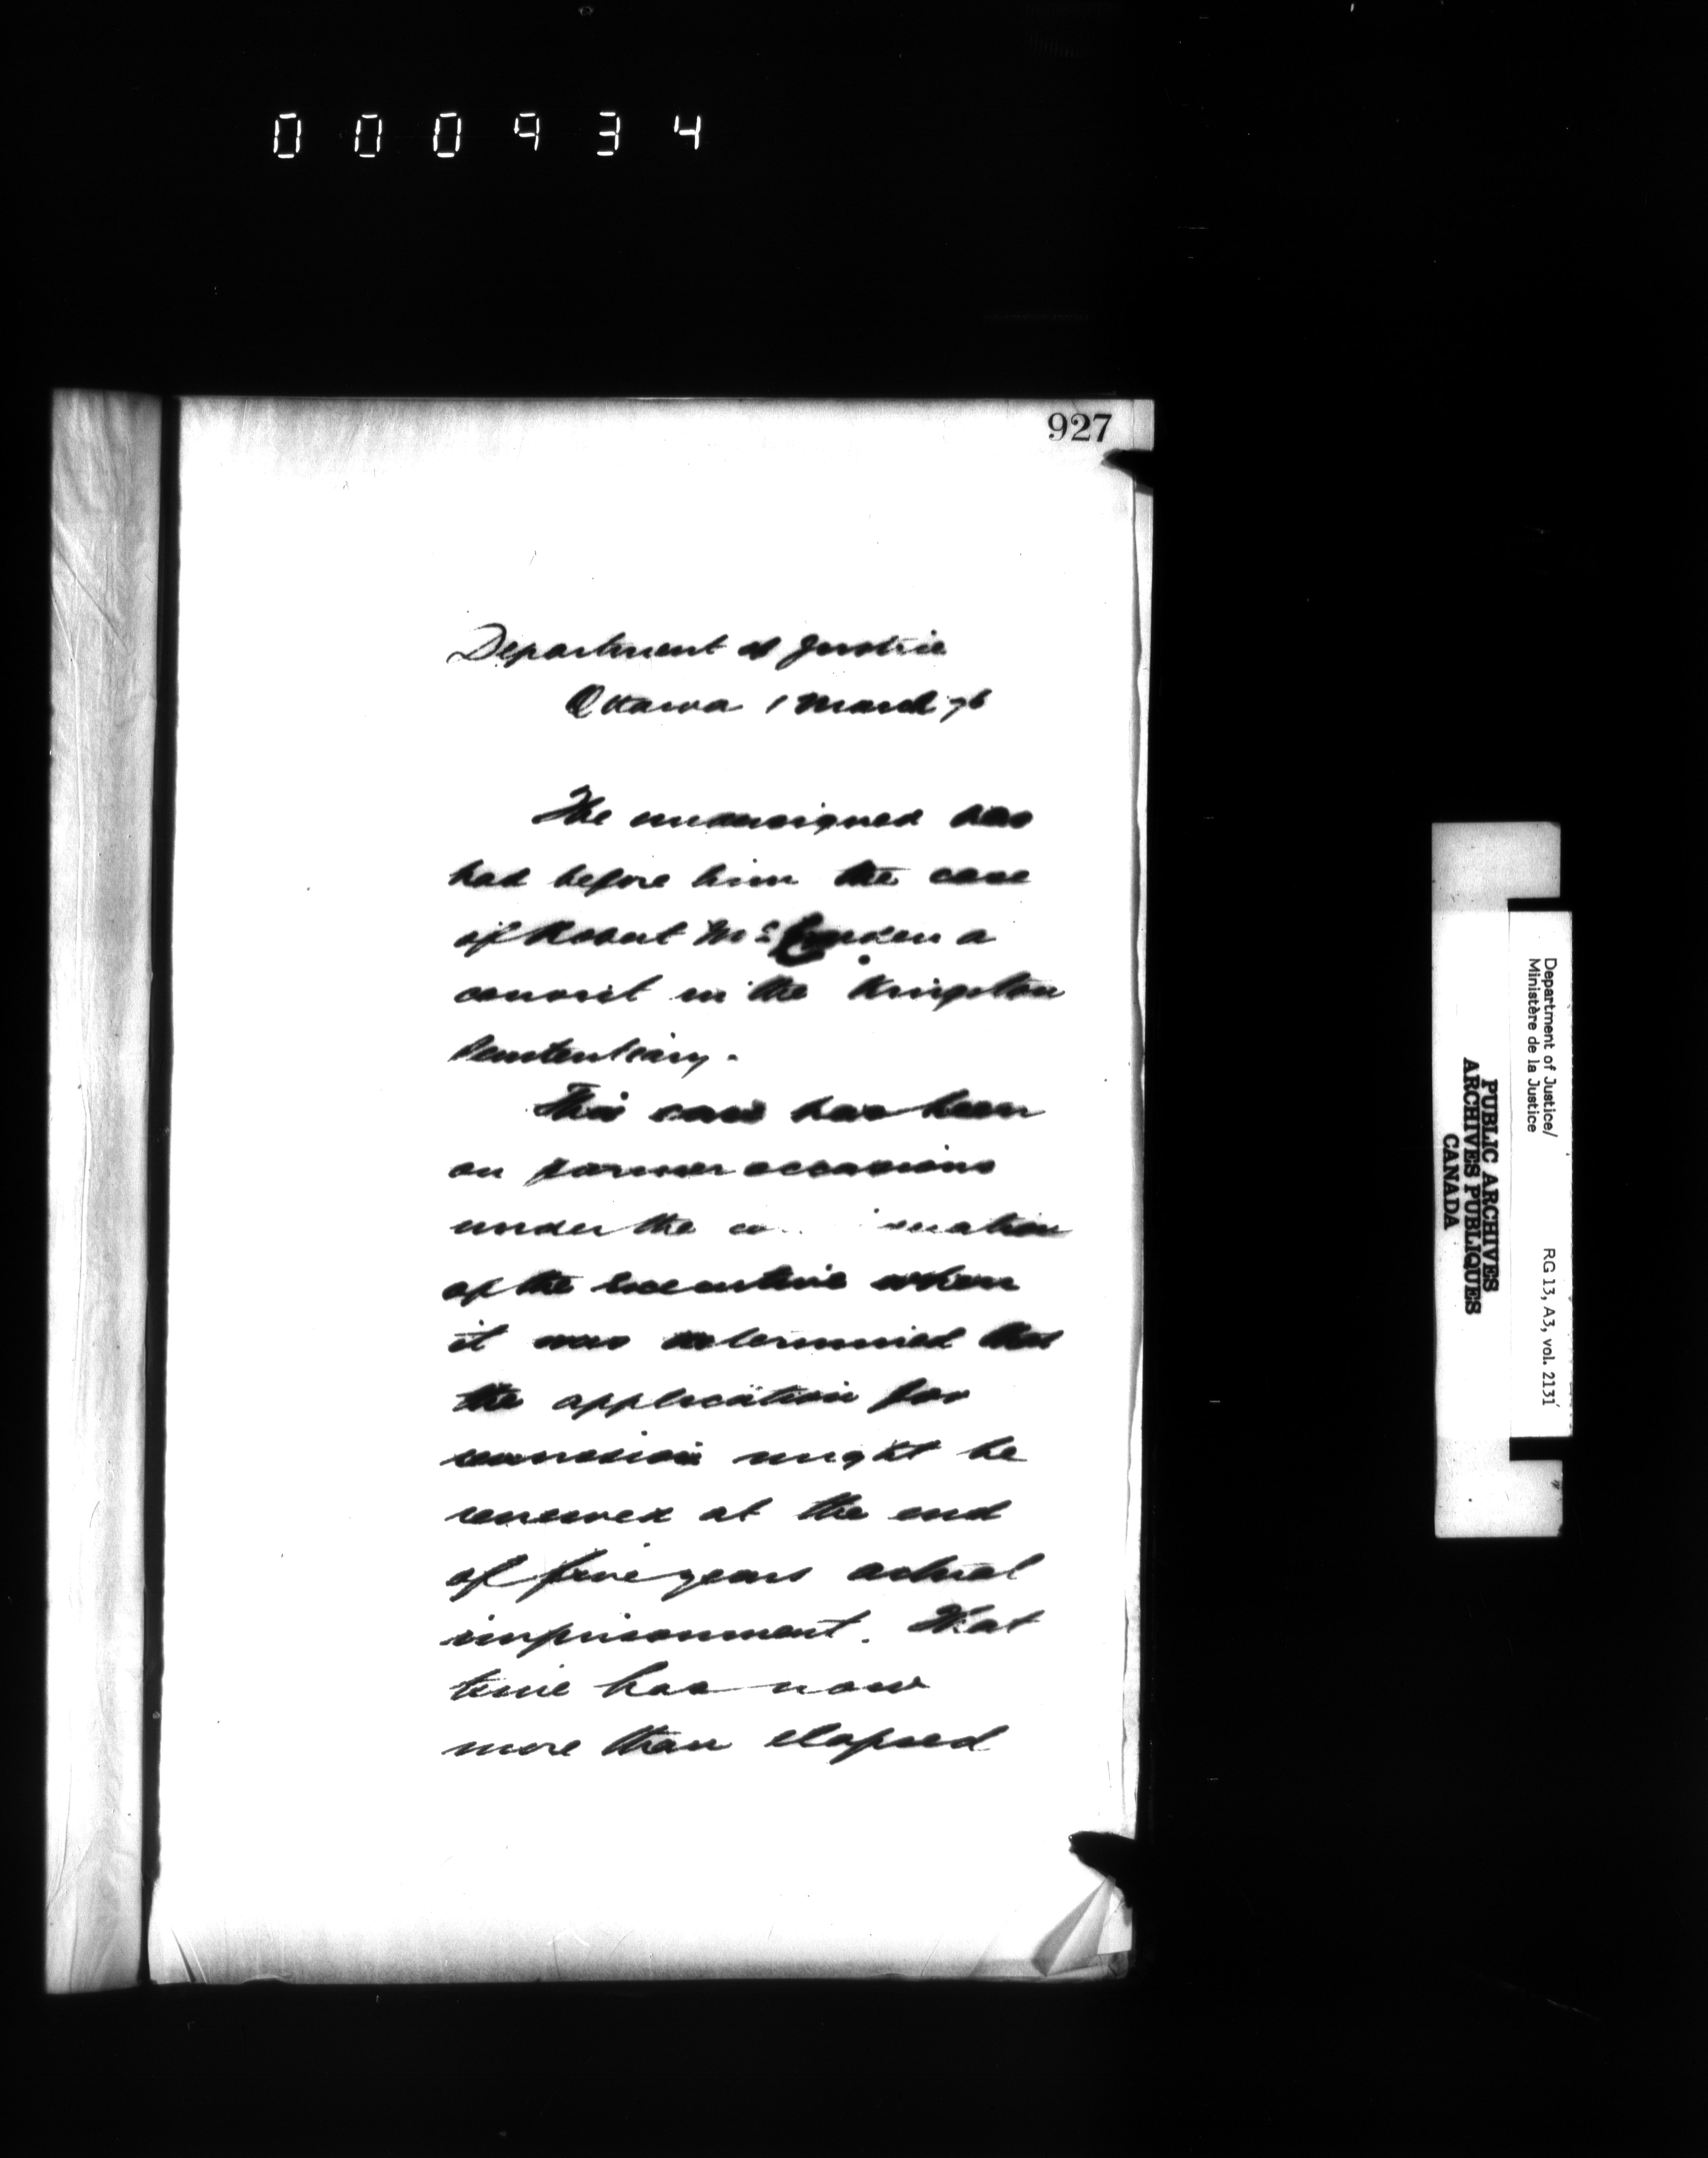 000934
927
Department of Justice
Ottawa 1 March 76
The undersigned has
had before him the case
of Robert Mc a
convict in the Kingston
Penitentiary.
This case has been
on former occasions
under the
of the Executive when
it was determined that
the application for
remission might be
renewed at the end
of five years actual
imprisonment. That
time has now
more than elapsed
Department of Justice/
Ministère de la Justice
RG 13, A3, vol. 2131
PUBLIC ARCHIVES
ARCHIVES PUBLIQUES
CANADA